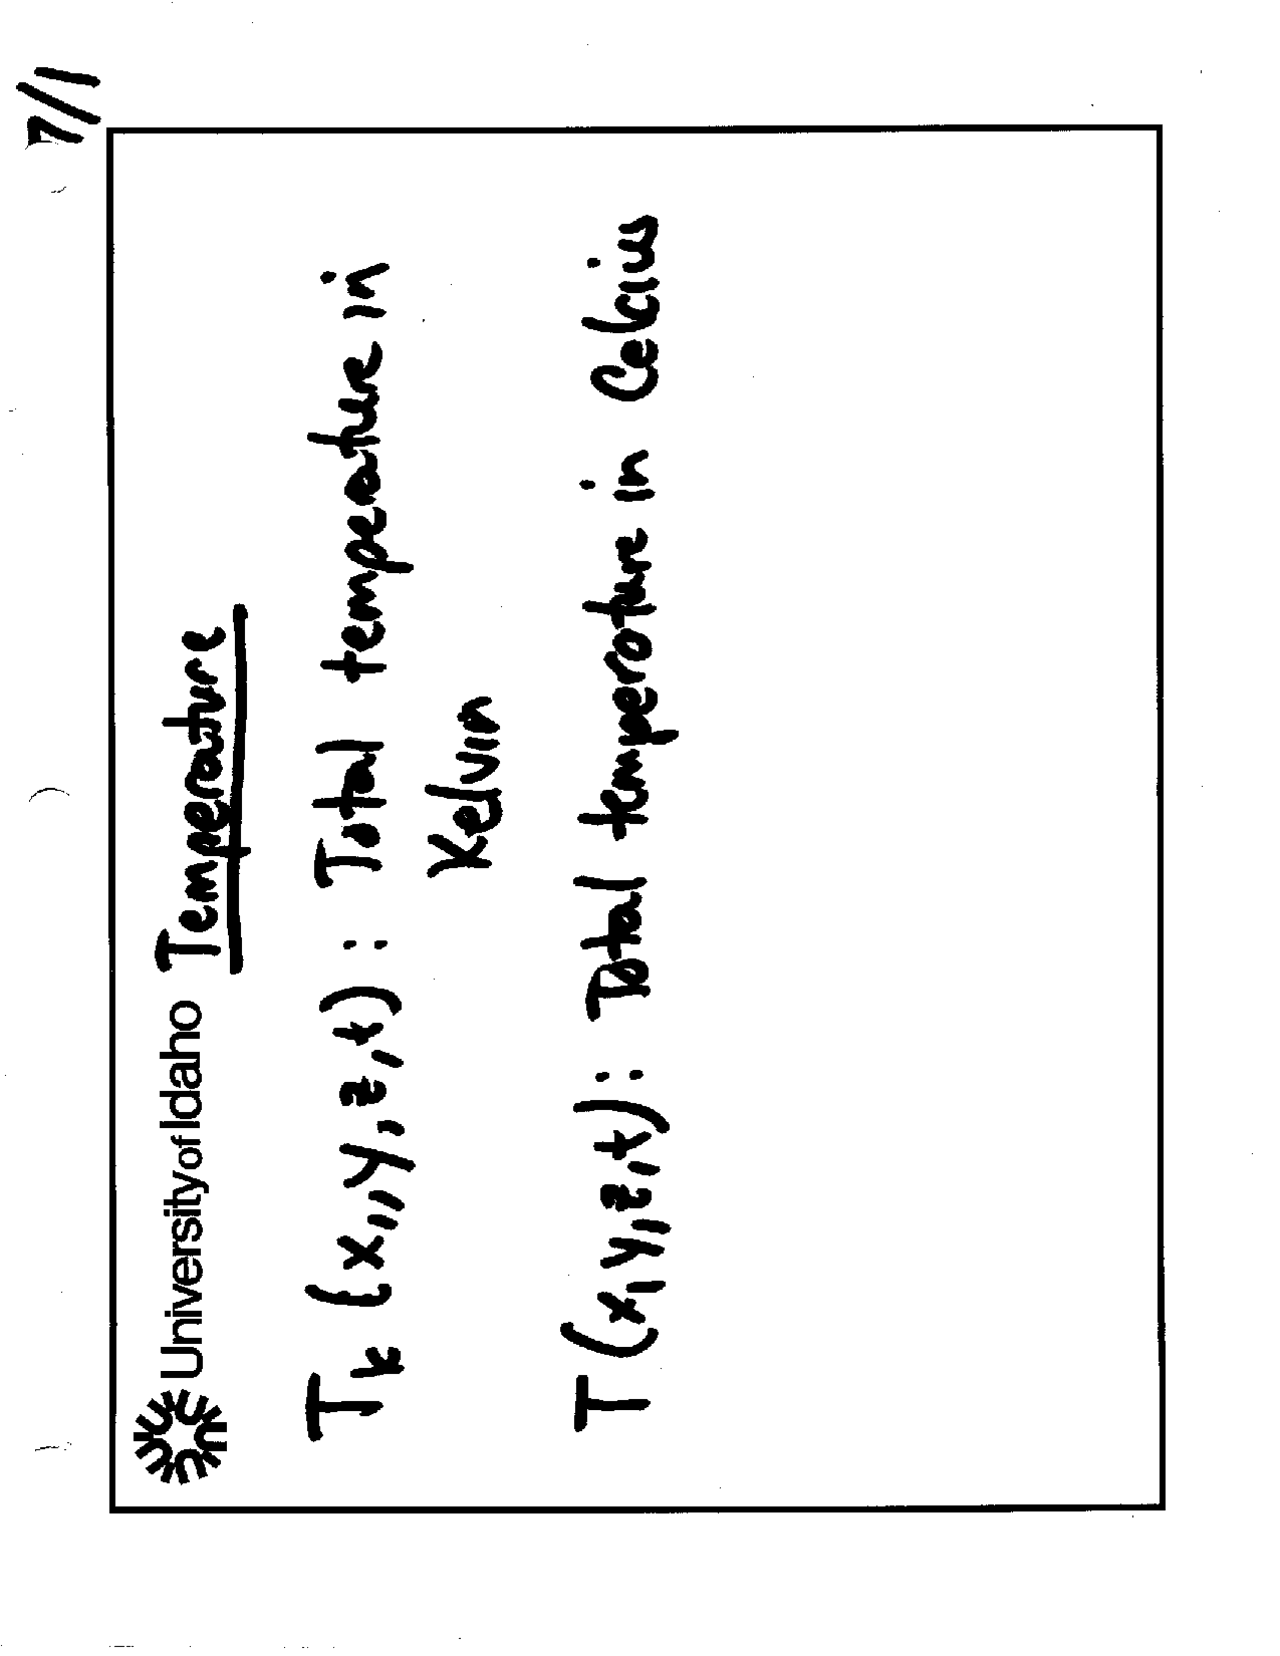 7/1
University of Idaho Temperature
Tk (x,,y,z,t) : Total temperature in
Kelvin
T(x,y,z,t) : Total temperature in Celcius